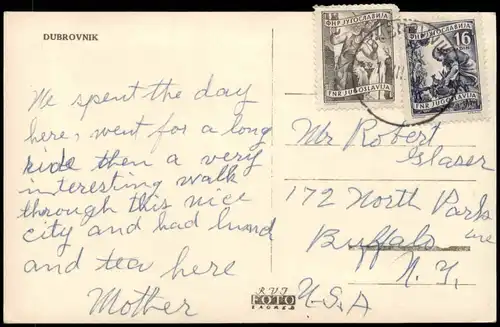 DUBROVNIK
ФНР ЈУГОСЛАВИЈА
FNR JUGOSLAVIJA
ФНР ЈУГОСЛАВИЈА
16
FNR JUGOSLAVIJA
We spent the day
here, went for a long
ride then a very
interesting walk
through this nice
city and had lunch
and tea here
Mother
Mr Robert
Glaser
172 North Park
ave
Buffalo
N. Y.
U.S.A
FOTO
ZAGREB